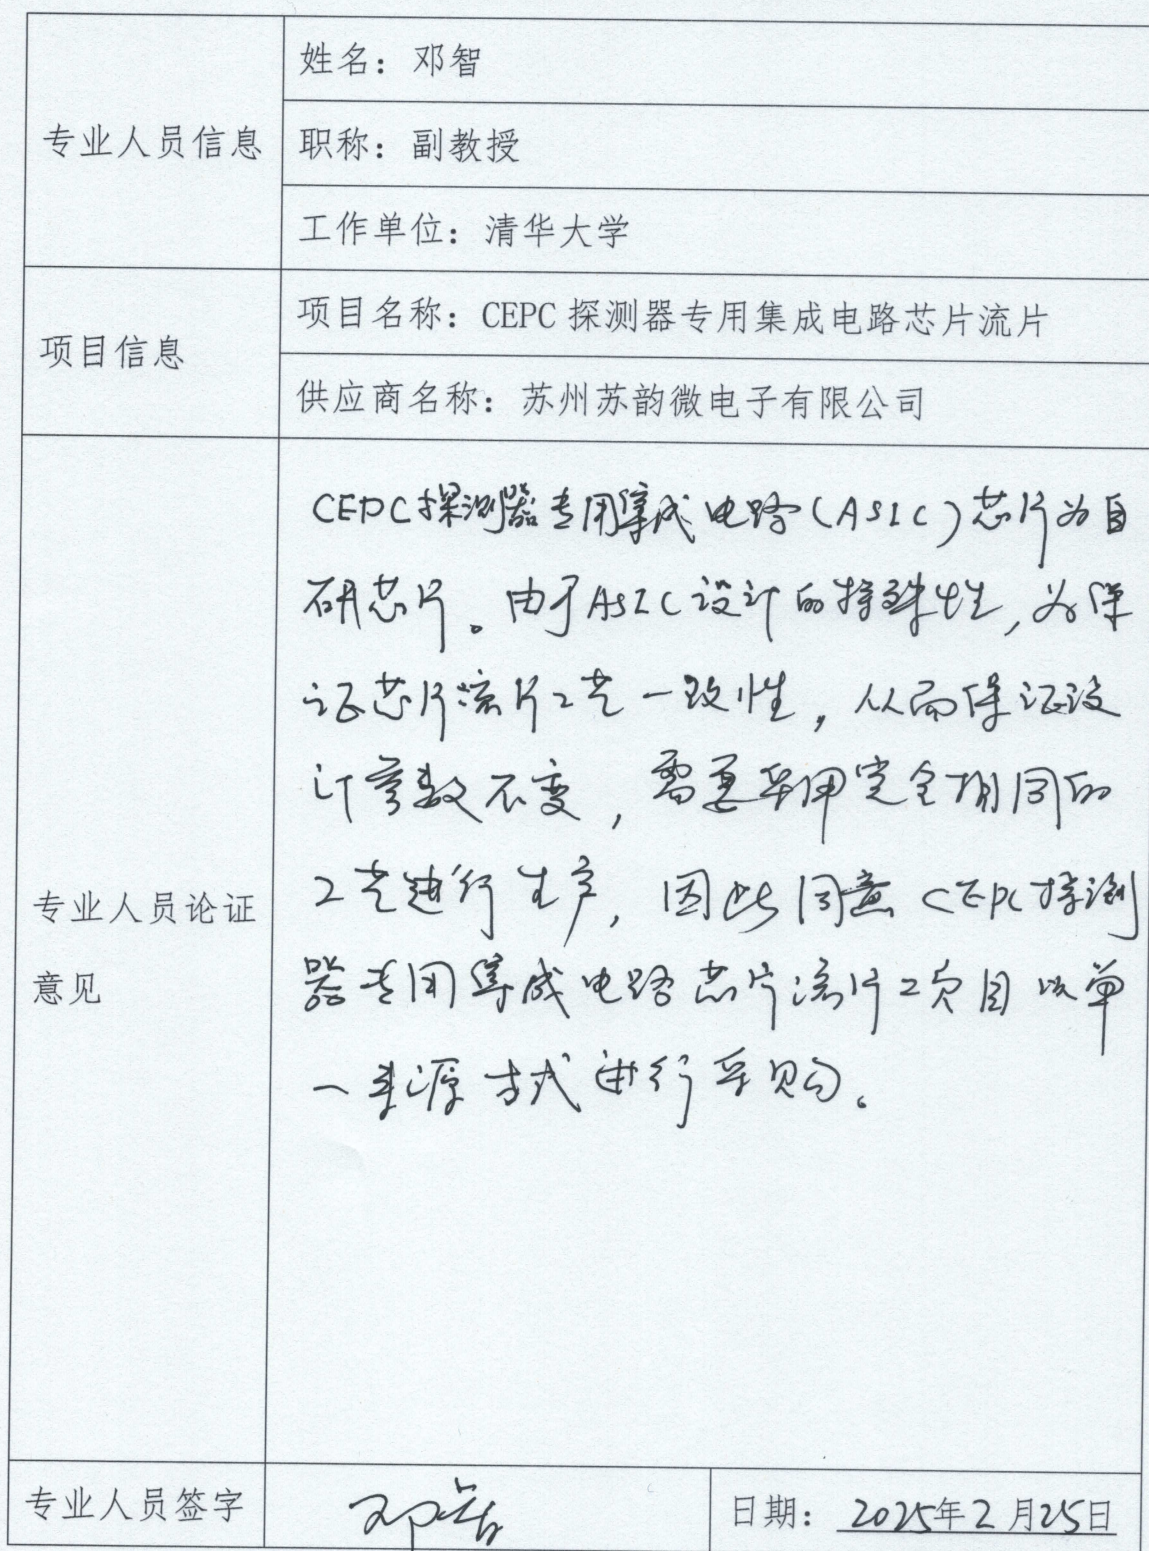 专业人员信息
姓名：邓智
职称：副教授
工作单位：清华大学
项目信息
项目名称：CEPC 探测器专用集成电路芯片流片
供应商名称：苏州苏韵微电子有限公司
专业人员论证
意见
CEPC探测器专用集成电路（ASIC）芯片为自
研芯片。由于ASIC设计的特殊性，为保
证芯片流片工艺一致性，从而保证设
计参数不变，需要采用完全相同的
工艺进行生产，因此同意CEPC探测
器专用集成电路芯片流片项目以单
一来源方式进行采购。
专业人员签字
邓智
日期：2025年2月25日